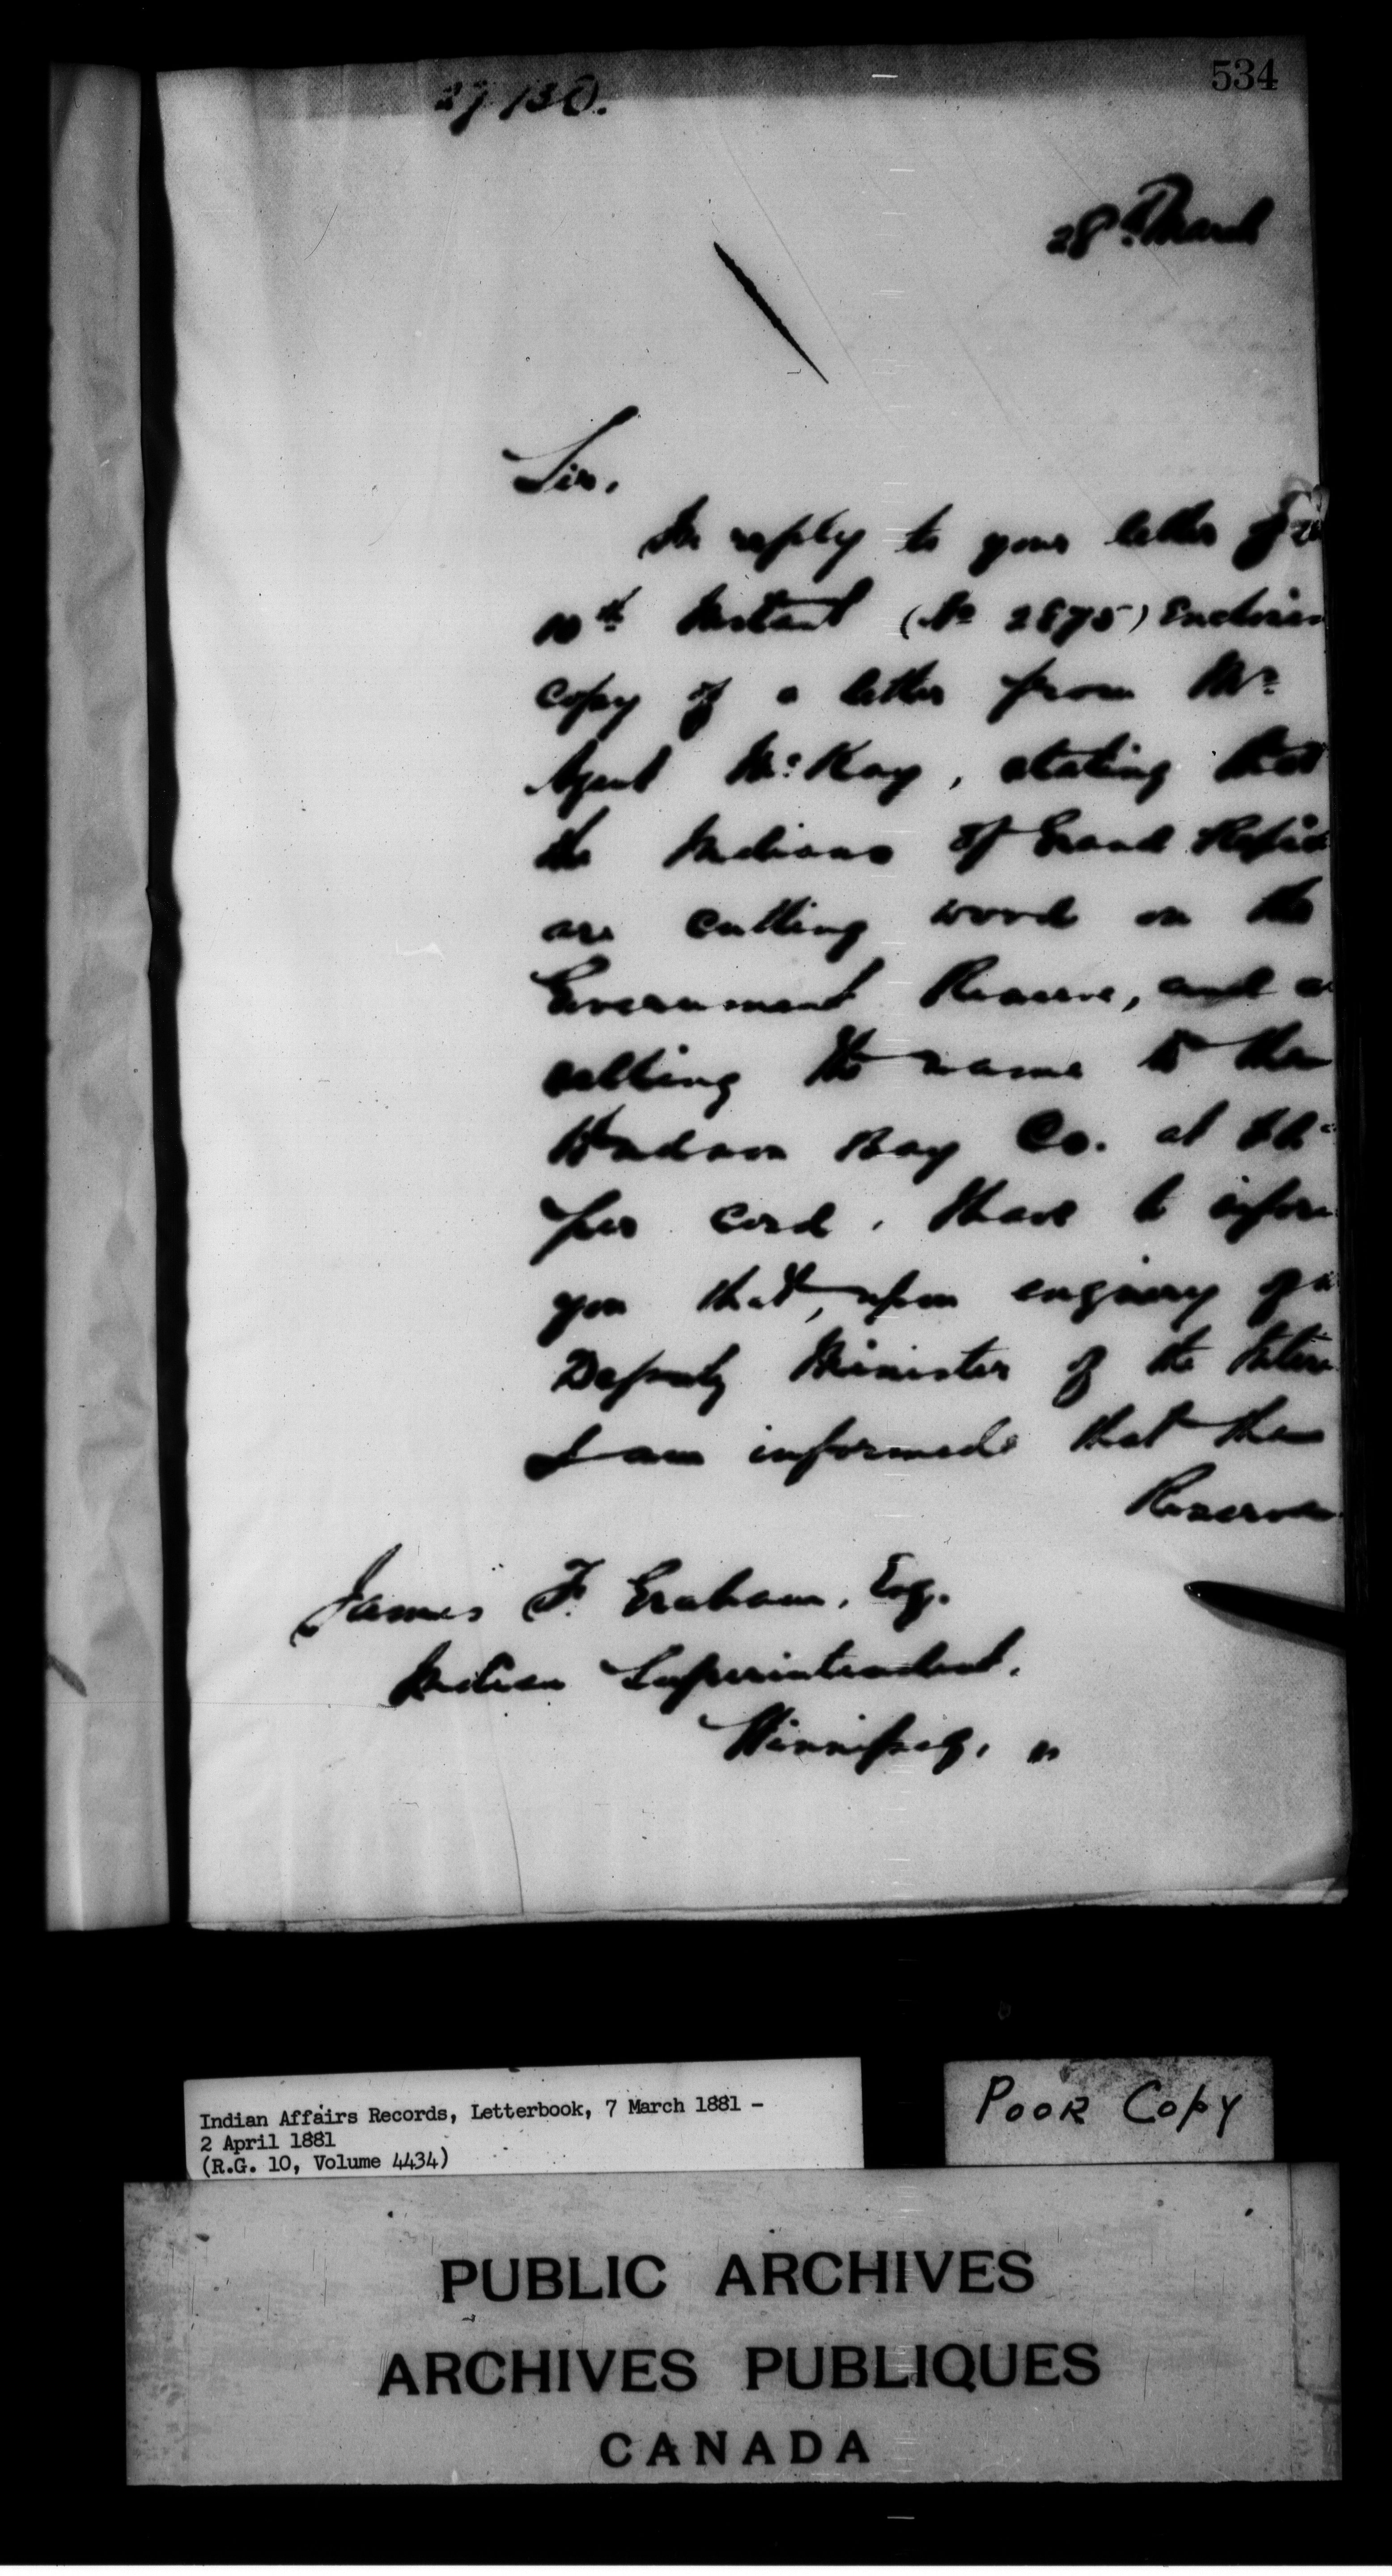 534
27130.
28th March
Sir,
In reply to your letter of
10th Instant (No 2875) Enclosin
copy of a letter from Mr
Agent McKay, stating that
the Indians of Grand Rapid
are cutting wood on the
Government Reserve, and a
selling the same to the
Hudson Bay Co. at
per cord. I have to inform
you that, upon enquiry of
Deputy Minister of the Interi
I am informed that the
Reserve
James F. Graham, Esq.
Indian Superintendent.
Winnipeg.
Indian Affairs Records, Letterbook, 7 March 1881 -
2 April 1881
(R.G. 10, Volume 4434)
Poor Copy
PUBLIC ARCHIVES
ARCHIVES PUBLIQUES
CANADA